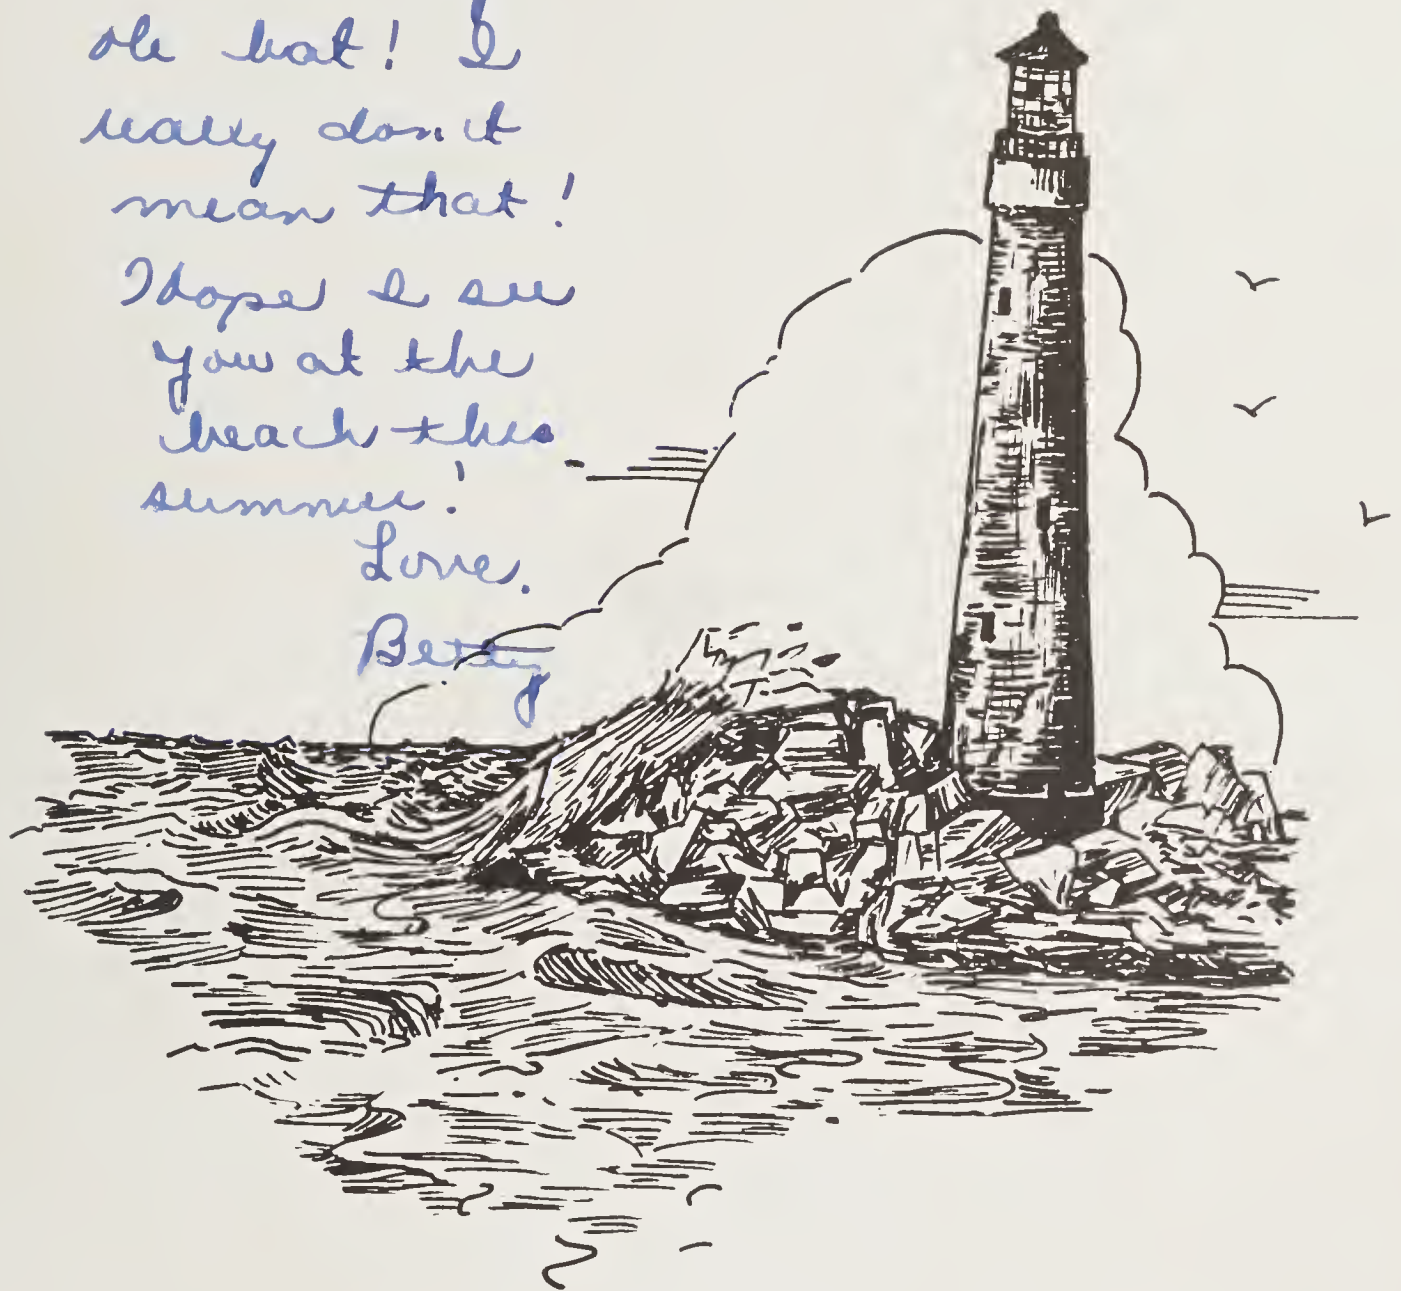 ole bat! I
really don't
mean that!
Hope I see
you at the
beach this
summer!
Love,
Betty